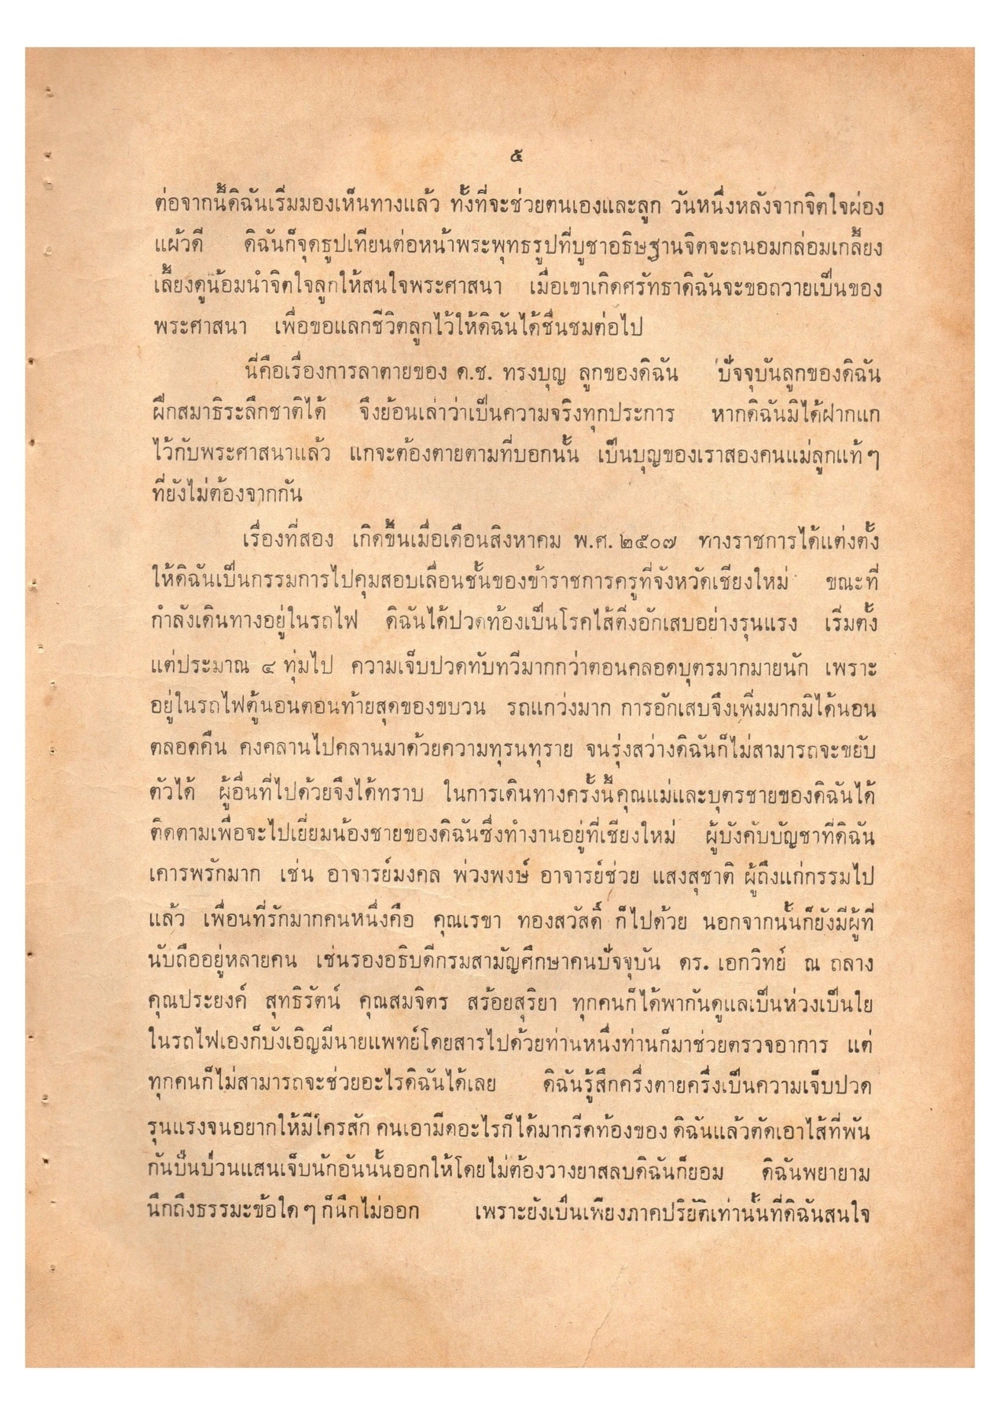 ๕
ต่อจากนี้ดิฉันเริ่มมองเห็นทางแล้ว ทั้งที่จะช่วยตนเองและลูก วันหนึ่งหลังจากจิตใจผ่อง
แผ้วดี ดิฉันก็จุดธูปเทียนต่อหน้าพระพุทธรูปที่บูชาอธิษฐานจิตจะถนอมกล่อมเกลี้ยง
เลี้ยงดูน้อมนำจิตใจลูกให้สนใจพระศาสนา เมื่อเขาเกิดศรัทธาดิฉันจะขอถวายเป็นของ
พระศาสนา เพื่อขอแลกชีวิตลูกไว้ให้ดิฉันได้ชื่นชมต่อไป
นี่คือเรื่องการลาตายของ ด.ช. ทรงบุญ ลูกของดิฉัน ปัจจุบันลูกของดิฉัน
ฝึกสมาธิระลึกชาติได้ จึงย้อนเล่าว่าเป็นความจริงทุกประการ หากดิฉันมิได้ฝากแก
ไว้กับพระศาสนาแล้ว แกจะต้องตายตามที่บอกนั้น เป็นบุญของเราสองคนแม่ลูกแท้ๆ
ที่ยังไม่ต้องจากกัน
เรื่องที่สอง เกิดขึ้นเมื่อเดือนสิงหาคม พ.ศ. ๒๕๐๗ ทางราชการได้แต่งตั้ง
ให้ดิฉันเป็นกรรมการไปคุมสอบเลื่อนชั้นของข้าราชการครูที่จังหวัดเชียงใหม่ ขณะที่
กำลังเดินทางอยู่ในรถไฟ ดิฉันได้ปวดท้องเป็นโรคไส้ติ่งอักเสบอย่างรุนแรง เริ่มตั้ง
แต่ประมาณ ๔ ทุ่มไป ความเจ็บปวดทับทวีมากกว่าตอนคลอดบุตรมากมายนัก เพราะ
อยู่ในรถไฟตู้นอนตอนท้ายสุดของขบวน รถแกว่งมาก การอักเสบจึงเพิ่มมากมิได้นอน
ตลอดคืน คงคลานไปคลานมาด้วยความทุรนทุราย จนรุ่งสว่างดิฉันก็ไม่สามารถจะขยับ
ตัวได้ ผู้อื่นที่ไปด้วยจึงได้ทราบ ในการเดินทางครั้งนี้คุณแม่และบุตรชายของดิฉันได้
ติดตามเพื่อจะไปเยี่ยมน้องชายของดิฉันซึ่งทำงานอยู่ที่เชียงใหม่ ผู้บังคับบัญชาที่ดิฉัน
เคารพรักมาก เช่น อาจารย์มงคล พ่วงพงษ์ อาจารย์ช่วย แสงสุชาติ ผู้ถึงแก่กรรมไป
แล้ว เพื่อนที่รักมากคนหนึ่งคือ คุณเรขา ทองสวัสดิ์ ก็ไปด้วย นอกจากนั้นก็ยังมีผู้ที่
นับถืออยู่หลายคน เช่นรองอธิบดีกรมสามัญศึกษาคนปัจจุบัน ดร. เอกวิทย์ ณ ถลาง
คุณประยงค์ สุทธิรัตน์ คุณสมจิตร สร้อยสุริยา ทุกคนก็ได้พากันดูแลเป็นห่วงเป็นใย
ในรถไฟเองก็บังเอิญมีนายแพทย์โดยสารไปด้วยท่านหนึ่งท่านก็มาช่วยตรวจอาการ แต่
ทุกคนก็ไม่สามารถจะช่วยอะไรดิฉันได้เลย ดิฉันรู้สึกครึ่งตายครึ่งเป็นความเจ็บปวด
รุนแรงจนอยากให้มีใครสัก คนเอามีดอะไรก็ได้มากรีดท้องของ ดิฉันแล้วตัดเอาไส้ที่พัน
กันปั่นป่วนแสนเจ็บนักอันนั้นออกให้โดยไม่ต้องวางยาสลบดิฉันก็ยอม ดิฉันพยายาม
นึกถึงธรรมะข้อใดๆ ก็นึกไม่ออก เพราะยังเป็นเพียงภาคปริยัติเท่านั้นที่ดิฉันสนใจ